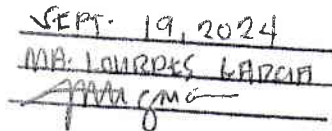 SEPT. 19, 2024
MA. LOURDES GARCIA